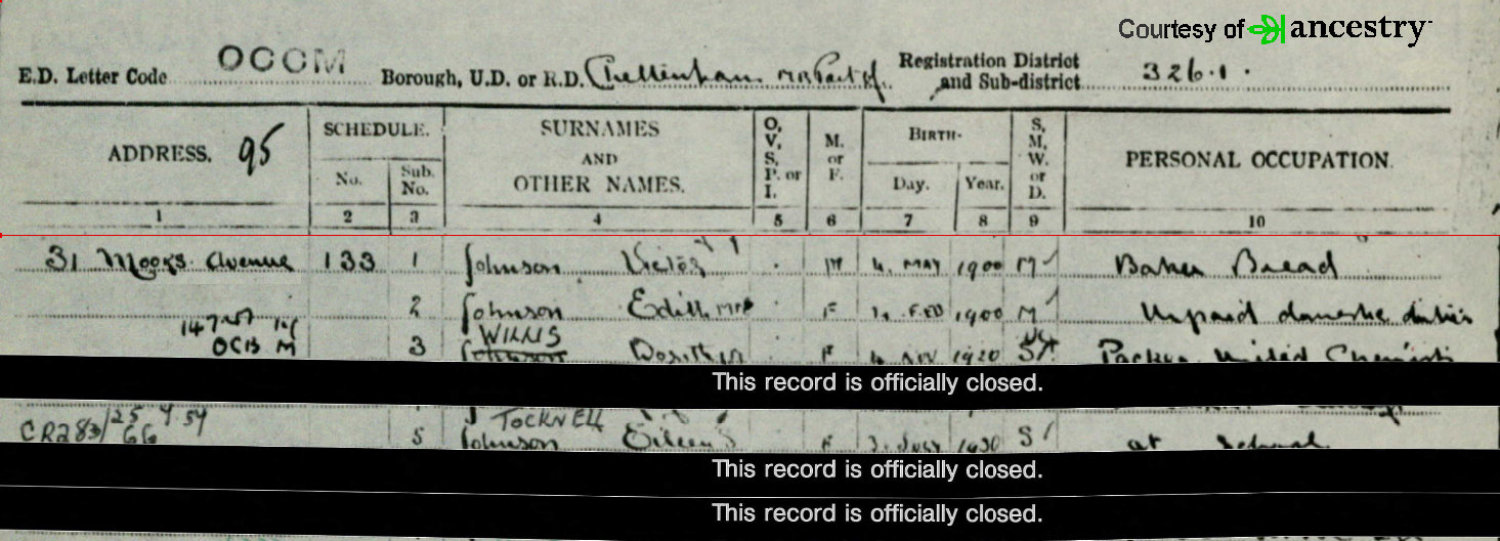 Courtesy of ancestry
E.D. Letter Code OCCM Borough, U.D. or R.D. Cheltenham M.B. Part of Registration District and Sub-district 326.1.
ADDRESS. 95 SCHEDULE. No. Sub. No. SURNAMES AND OTHER NAMES. O, V, S, P. or I. M. or F. BIRTH- Day. Year. S, M, W. or D. PERSONAL OCCUPATION.
1 2 3 4 5 6 7 8 9 10
31 Avenue 133 1 Johnson Victor M 4. MAY 1900 M Baker Bread
2 Johnson Edith F FEB 1900 M Unpaid domestic duties
WILLIS
OCB M 3 Johnson F 4 NOV 1920 S Packer United Chemists
This record is officially closed.
TOCKNELL
CR283/66 25 4 54 5 Johnson Eileen S F JULY 1930 S at School
This record is officially closed.
This record is officially closed.